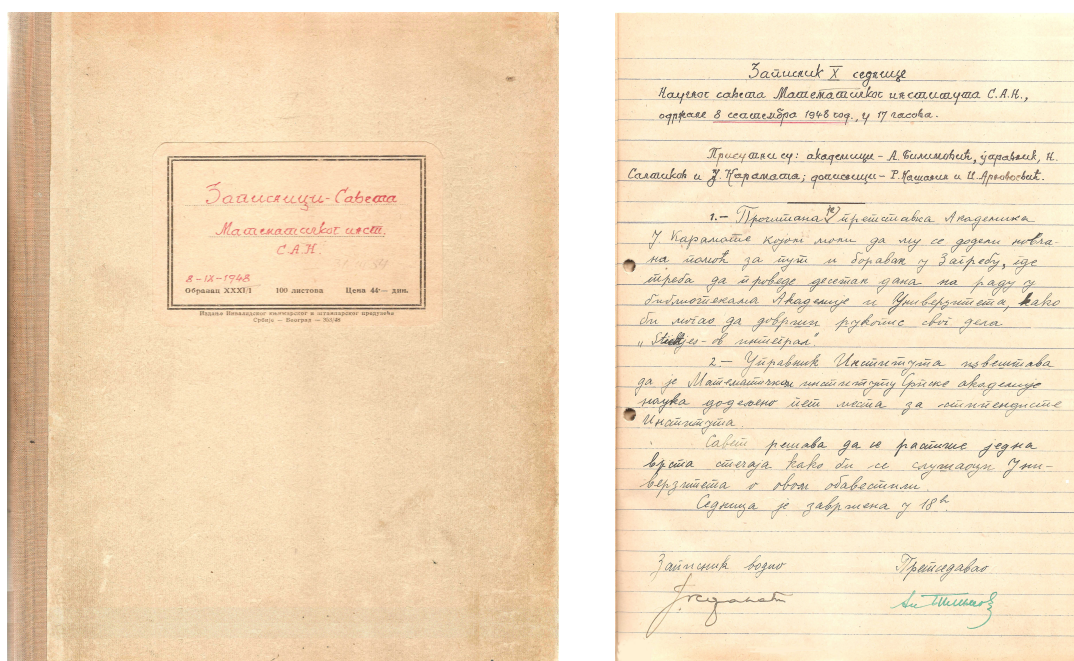 Записници - Савета
Математичког инст.
С.А.Н.
8-IX-1948
Образац XXXI/1 100 листова Цена 44·— дин.
Издање Београд — 
Записник X седнице
Научног савета Математичког института С.А.Н.,
одржане 8 септембра 1948 год., у 17 часова.
Присутни су: академици - А. Билимовић, управник, Н.
Салтиков и Ј. Карамата; дописници - Р. Кашанин и
1.— Прочитана је претставка Академика
Ј Карамате којом моли да му се додели новча-
на помоћ за пут и боравак у Загребу, где
треба да проведе десетак дана на раду у
библиотекама Академије и Универзитета, како
би могао да доврши рукопис свог дела
„Stieltjes-ов интеграл".
2.— Управник Института извештава
да је Математичком институту Српске академије
наука додељено пет места за стипендисте
Института.
Савет решава да се распише једна
врста стечаја како би се слушаоци Уни-
верзитета о овом обавестили.
Седница је завршена у 18h.
Записник водио Претседавао